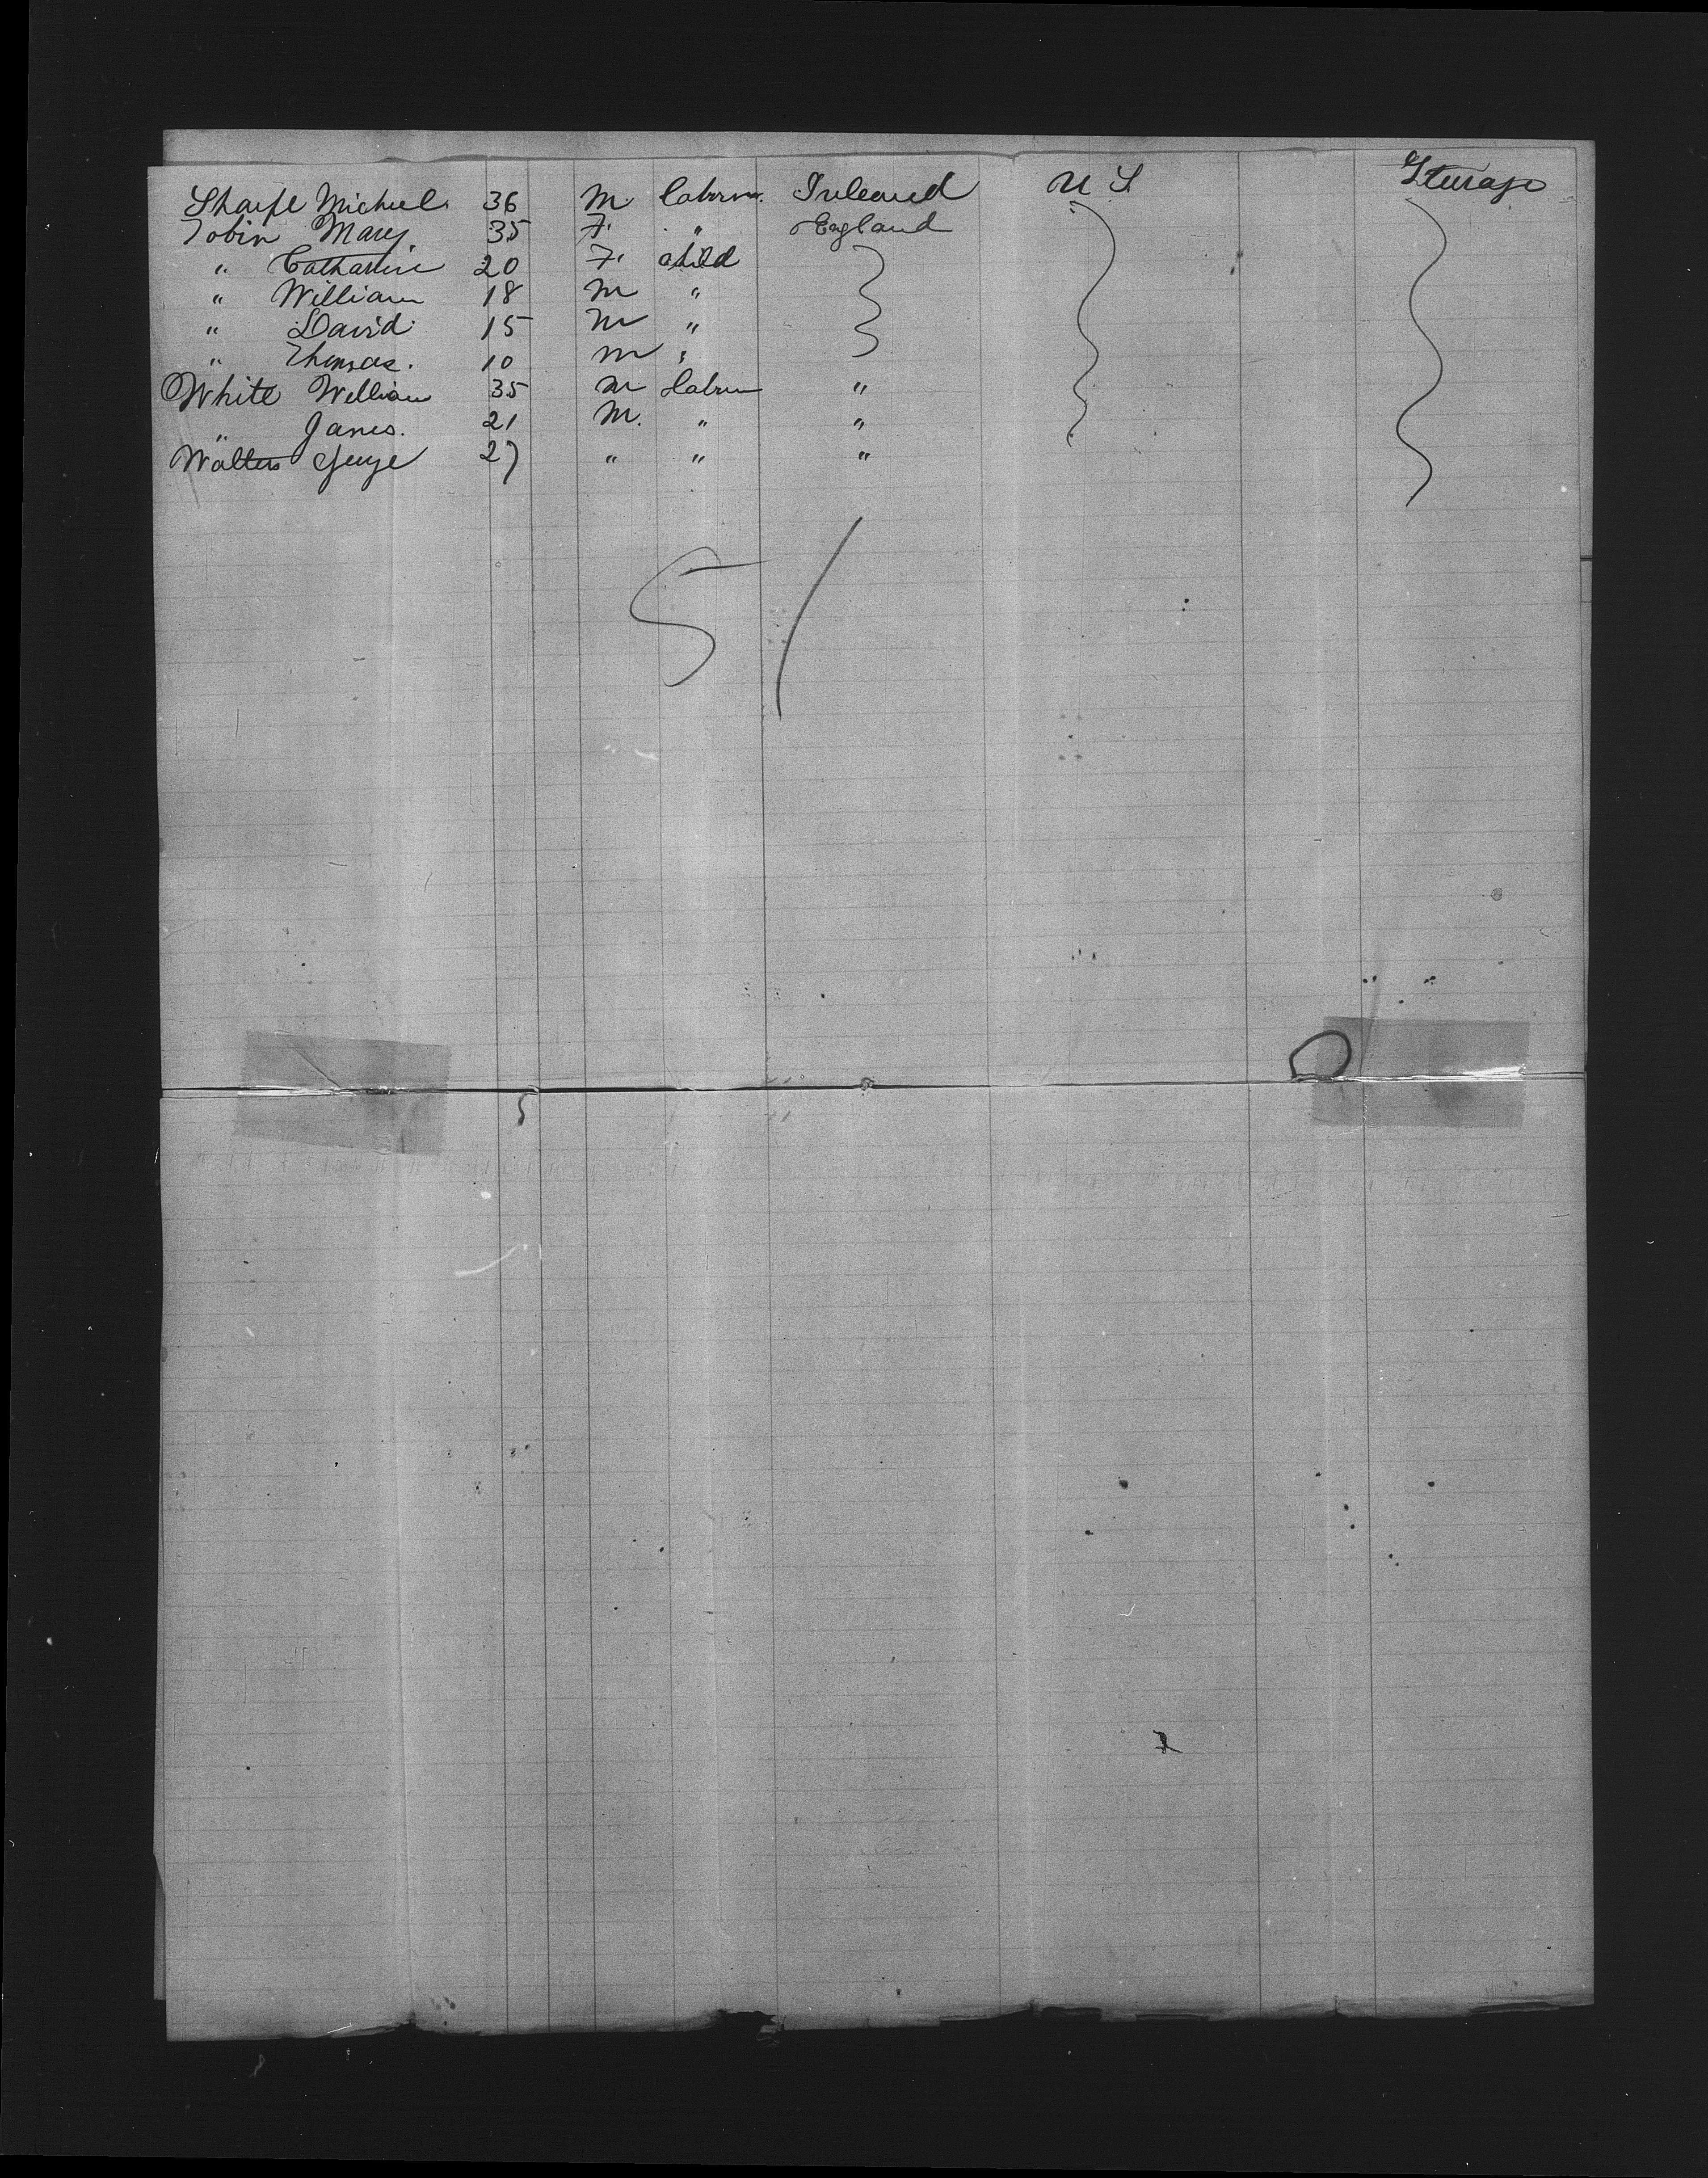 Sharpe Michael 36 M Laborer Ireland U S Steerage
Tobin Mary 35 F. " England
" Catharine 20 F. child
" William 18 M "
" David 15 M "
" Thomas. 10 M "
White William 35 M Labrer "
" James. 21 M. " "
Walters George 27 " " "
51